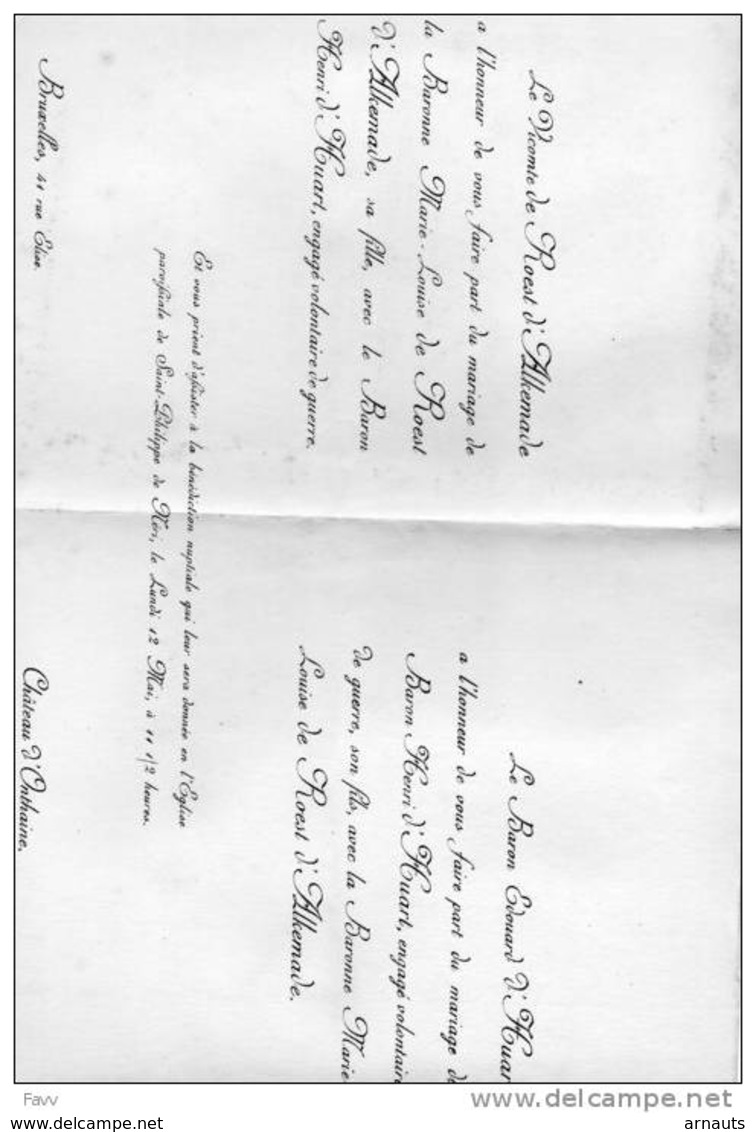 Le Vicomte de Roest d'Alkemade
a l'honneur de vous faire part du mariage de
la Baronne Marie-Louise de Roest
d'Alkemade, sa fille, avec le Baron
Henri d'Huart, engagé volontaire de guerre.
Le Baron Edouard d'Huar
a l'honneur de vous faire part du mariage de
Baron Henri d'Huart, engagé volontaire
de guerre, son fils, avec la Baronne Marie
Louise de Roest d'Alkemade.
Et vous prient d'assister à la bénédiction nuptiale qui leur sera donnée en l'Eglise
paroissiale de Saint-Philippe de Néri, le Lundi 12 Mai, à 11 1/2 heures.
Bruxelles, 41 rue Elise.
Château d'Onthaine.
Favv
www.delcampe.net
arnauts